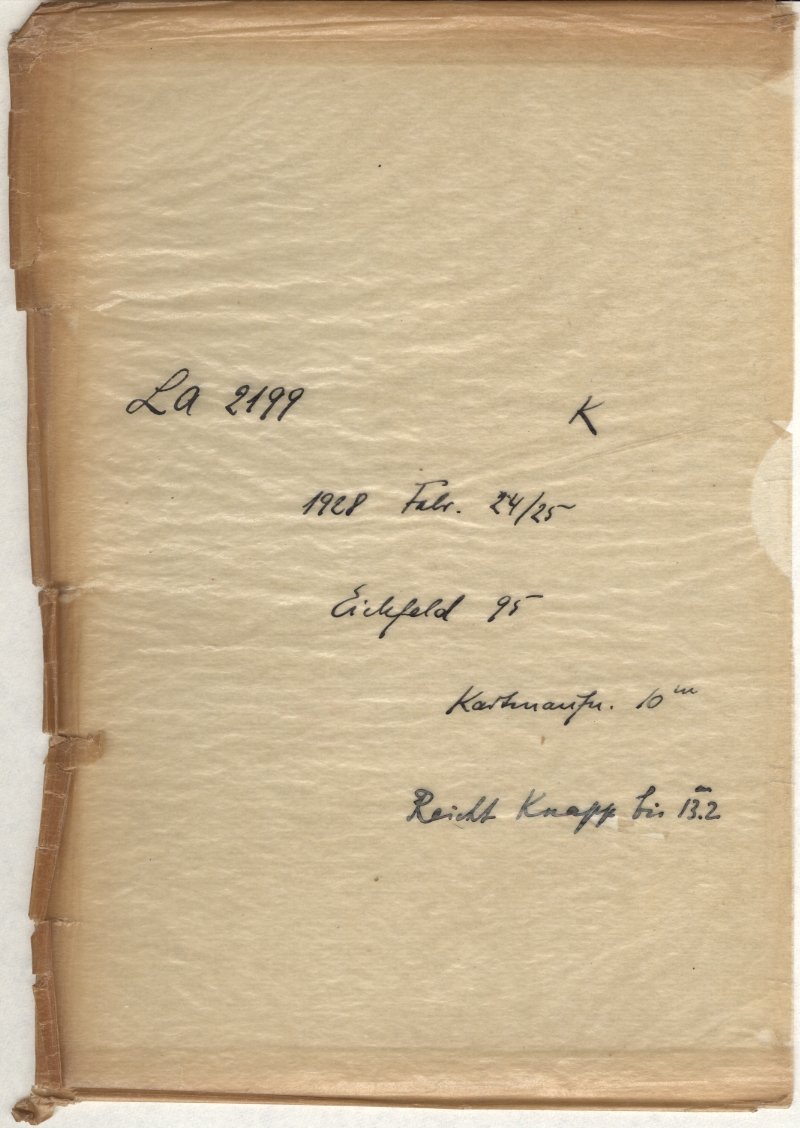 La 2199 K
1928 Febr. 24/25
Eichfeld 95
10 m
Reicht Knapp bis 13.2